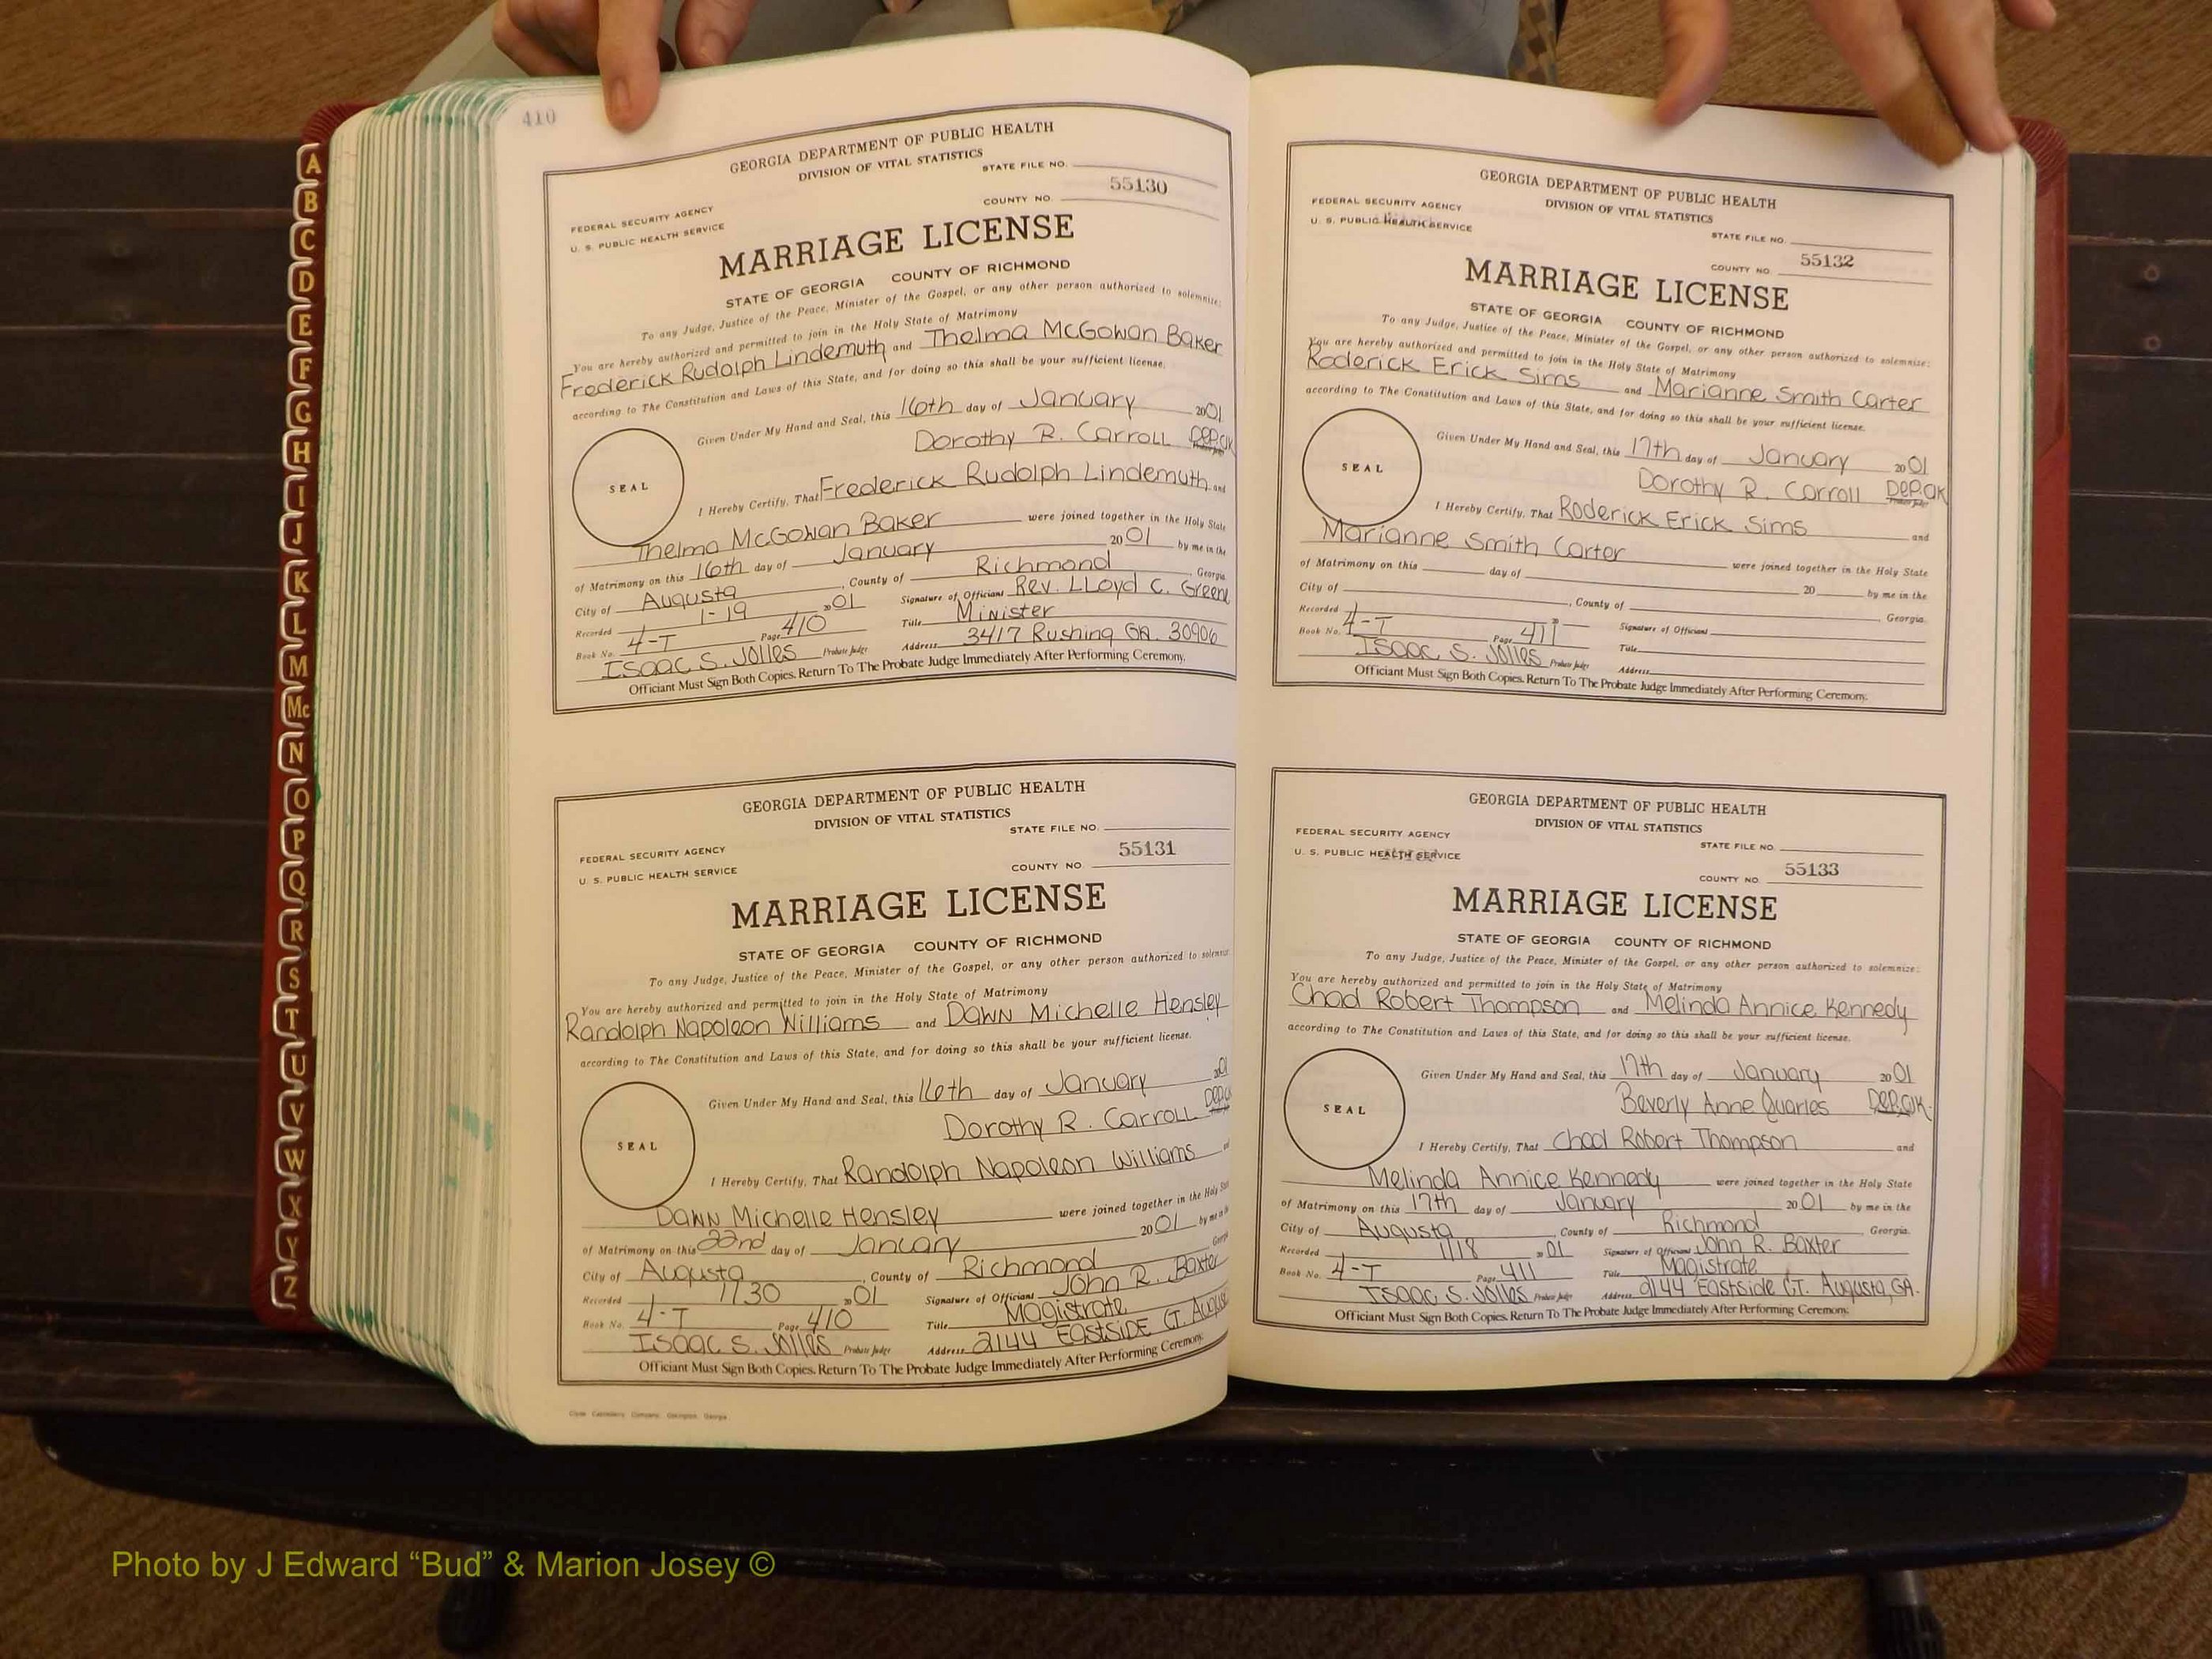 410
GEORGIA DEPARTMENT OF PUBLIC HEALTH
DIVISION OF VITAL STATISTICS
STATE FILE NO.
55130
COUNTY NO.
FEDERAL SECURITY AGENCY
U. S. PUBLIC HEALTH SERVICE
MARRIAGE LICENSE
STATE OF GEORGIA COUNTY OF RICHMOND
To any Judge, Justice of the Peace, Minister of the Gospel, or any other person authorized to solemnize:
You are hereby authorized and permitted to join in the Holy State of Matrimony
Frederick Rudolph Lindemuth and Thelma McGowan Baker
according to The Constitution and Laws of this State, and for doing so this shall be your sufficient license.
Given Under My Hand and Seal, this 16th day of January 2001
Dorothy R. Carroll Dep.Clk
SEAL
I Hereby Certify, That Frederick Rudolph Lindemuth and
Thelma McGowan Baker were joined together in the Holy State
of Matrimony on this 16th day of January 2001 by me in the
City of Augusta, County of Richmond Georgia.
Recorded 1-19 2001 Signature of Officiant Rev. LLoyd C. Greene
Book No. 4-T Page 410 Title Minister
Isaac S. Jolles Probate Judge Address 3417 Rushing GA. 30906
Officiant Must Sign Both Copies. Return To The Probate Judge Immediately After Performing Ceremony.
GEORGIA DEPARTMENT OF PUBLIC HEALTH
DIVISION OF VITAL STATISTICS
STATE FILE NO.
55131
COUNTY NO.
FEDERAL SECURITY AGENCY
U. S. PUBLIC HEALTH SERVICE
MARRIAGE LICENSE
STATE OF GEORGIA COUNTY OF RICHMOND
To any Judge, Justice of the Peace, Minister of the Gospel, or any other person authorized to solemnize
You are hereby authorized and permitted to join in the Holy State of Matrimony
Randolph Napoleon Williams and Dawn Michelle Hensley
according to The Constitution and Laws of this State, and for doing so this shall be your sufficient license.
Given Under My Hand and Seal, this 16th day of January 2001
Dorothy R. Carroll
SEAL
I Hereby Certify, That Randolph Napoleon Williams
Dawn Michelle Hensley were joined together in the Holy State
of Matrimony on this 22nd day of January 2001 by me in the
City of Augusta, County of Richmond Georgia
Recorded 1/30 2001 Signature of Officiant John R. Baxter
Book No. 4-T Page 410 Title Magistrate
Isaac S. Jolles Probate Judge Address 2144 Eastside CT. Augus
Officiant Must Sign Both Copies. Return To The Probate Judge Immediately After Performing Ceremony.
GEORGIA DEPARTMENT OF PUBLIC HEALTH
DIVISION OF VITAL STATISTICS
FEDERAL SECURITY AGENCY
U. S. PUBLIC HEALTH SERVICE
STATE FILE NO.
55132
COUNTY NO.
MARRIAGE LICENSE
STATE OF GEORGIA COUNTY OF RICHMOND
To any Judge, Justice of the Peace, Minister of the Gospel, or any other person authorized to solemnize:
You are hereby authorized and permitted to join in the Holy State of Matrimony
Roderick Erick Sims and Marianne Smith Carter
according to The Constitution and Laws of this State, and for doing so this shall be your sufficient license.
Given Under My Hand and Seal, this 17th day of January 2001
Dorothy R. Carroll Dep.Clk
SEAL
I Hereby Certify, That Roderick Erick Sims and
Marianne Smith Carter were joined together in the Holy State
of Matrimony on this day of 20 by me in the
City of , County of Georgia.
Recorded 20 Signature of Officiant
Book No. 4-T Page 411 Title
Isaac S. Jolles Probate Judge Address
Officiant Must Sign Both Copies. Return To The Probate Judge Immediately After Performing Ceremony.
GEORGIA DEPARTMENT OF PUBLIC HEALTH
DIVISION OF VITAL STATISTICS
FEDERAL SECURITY AGENCY
U. S. PUBLIC HEALTH SERVICE
STATE FILE NO.
55133
COUNTY NO.
MARRIAGE LICENSE
STATE OF GEORGIA COUNTY OF RICHMOND
To any Judge, Justice of the Peace, Minister of the Gospel, or any other person authorized to solemnize:
You are hereby authorized and permitted to join in the Holy State of Matrimony
Chad Robert Thompson and Melinda Annice Kennedy
according to The Constitution and Laws of this State, and for doing so this shall be your sufficient license.
Given Under My Hand and Seal, this 17th day of January 2001
Beverly Anne Quarles Dep.Clk.
SEAL
I Hereby Certify, That Chad Robert Thompson and
Melinda Annice Kennedy were joined together in the Holy State
of Matrimony on this 17th day of January 2001 by me in the
City of Augusta County of Richmond Georgia.
Recorded 1/18 2001 Signature of Officiant John R. Baxter
Book No. 4-T Page 411 Title Magistrate
Isaac S. Jolles Probate Judge Address 2144 Eastside CT. Augusta, GA.
Officiant Must Sign Both Copies. Return To The Probate Judge Immediately After Performing Ceremony.
A
B
C
D
E
F
G
H
I
J
K
L
M
Mc
N
O
P
Q
R
S
T
U
V
W
X
Y
Z
Photo by J Edward “Bud” & Marion Josey ©